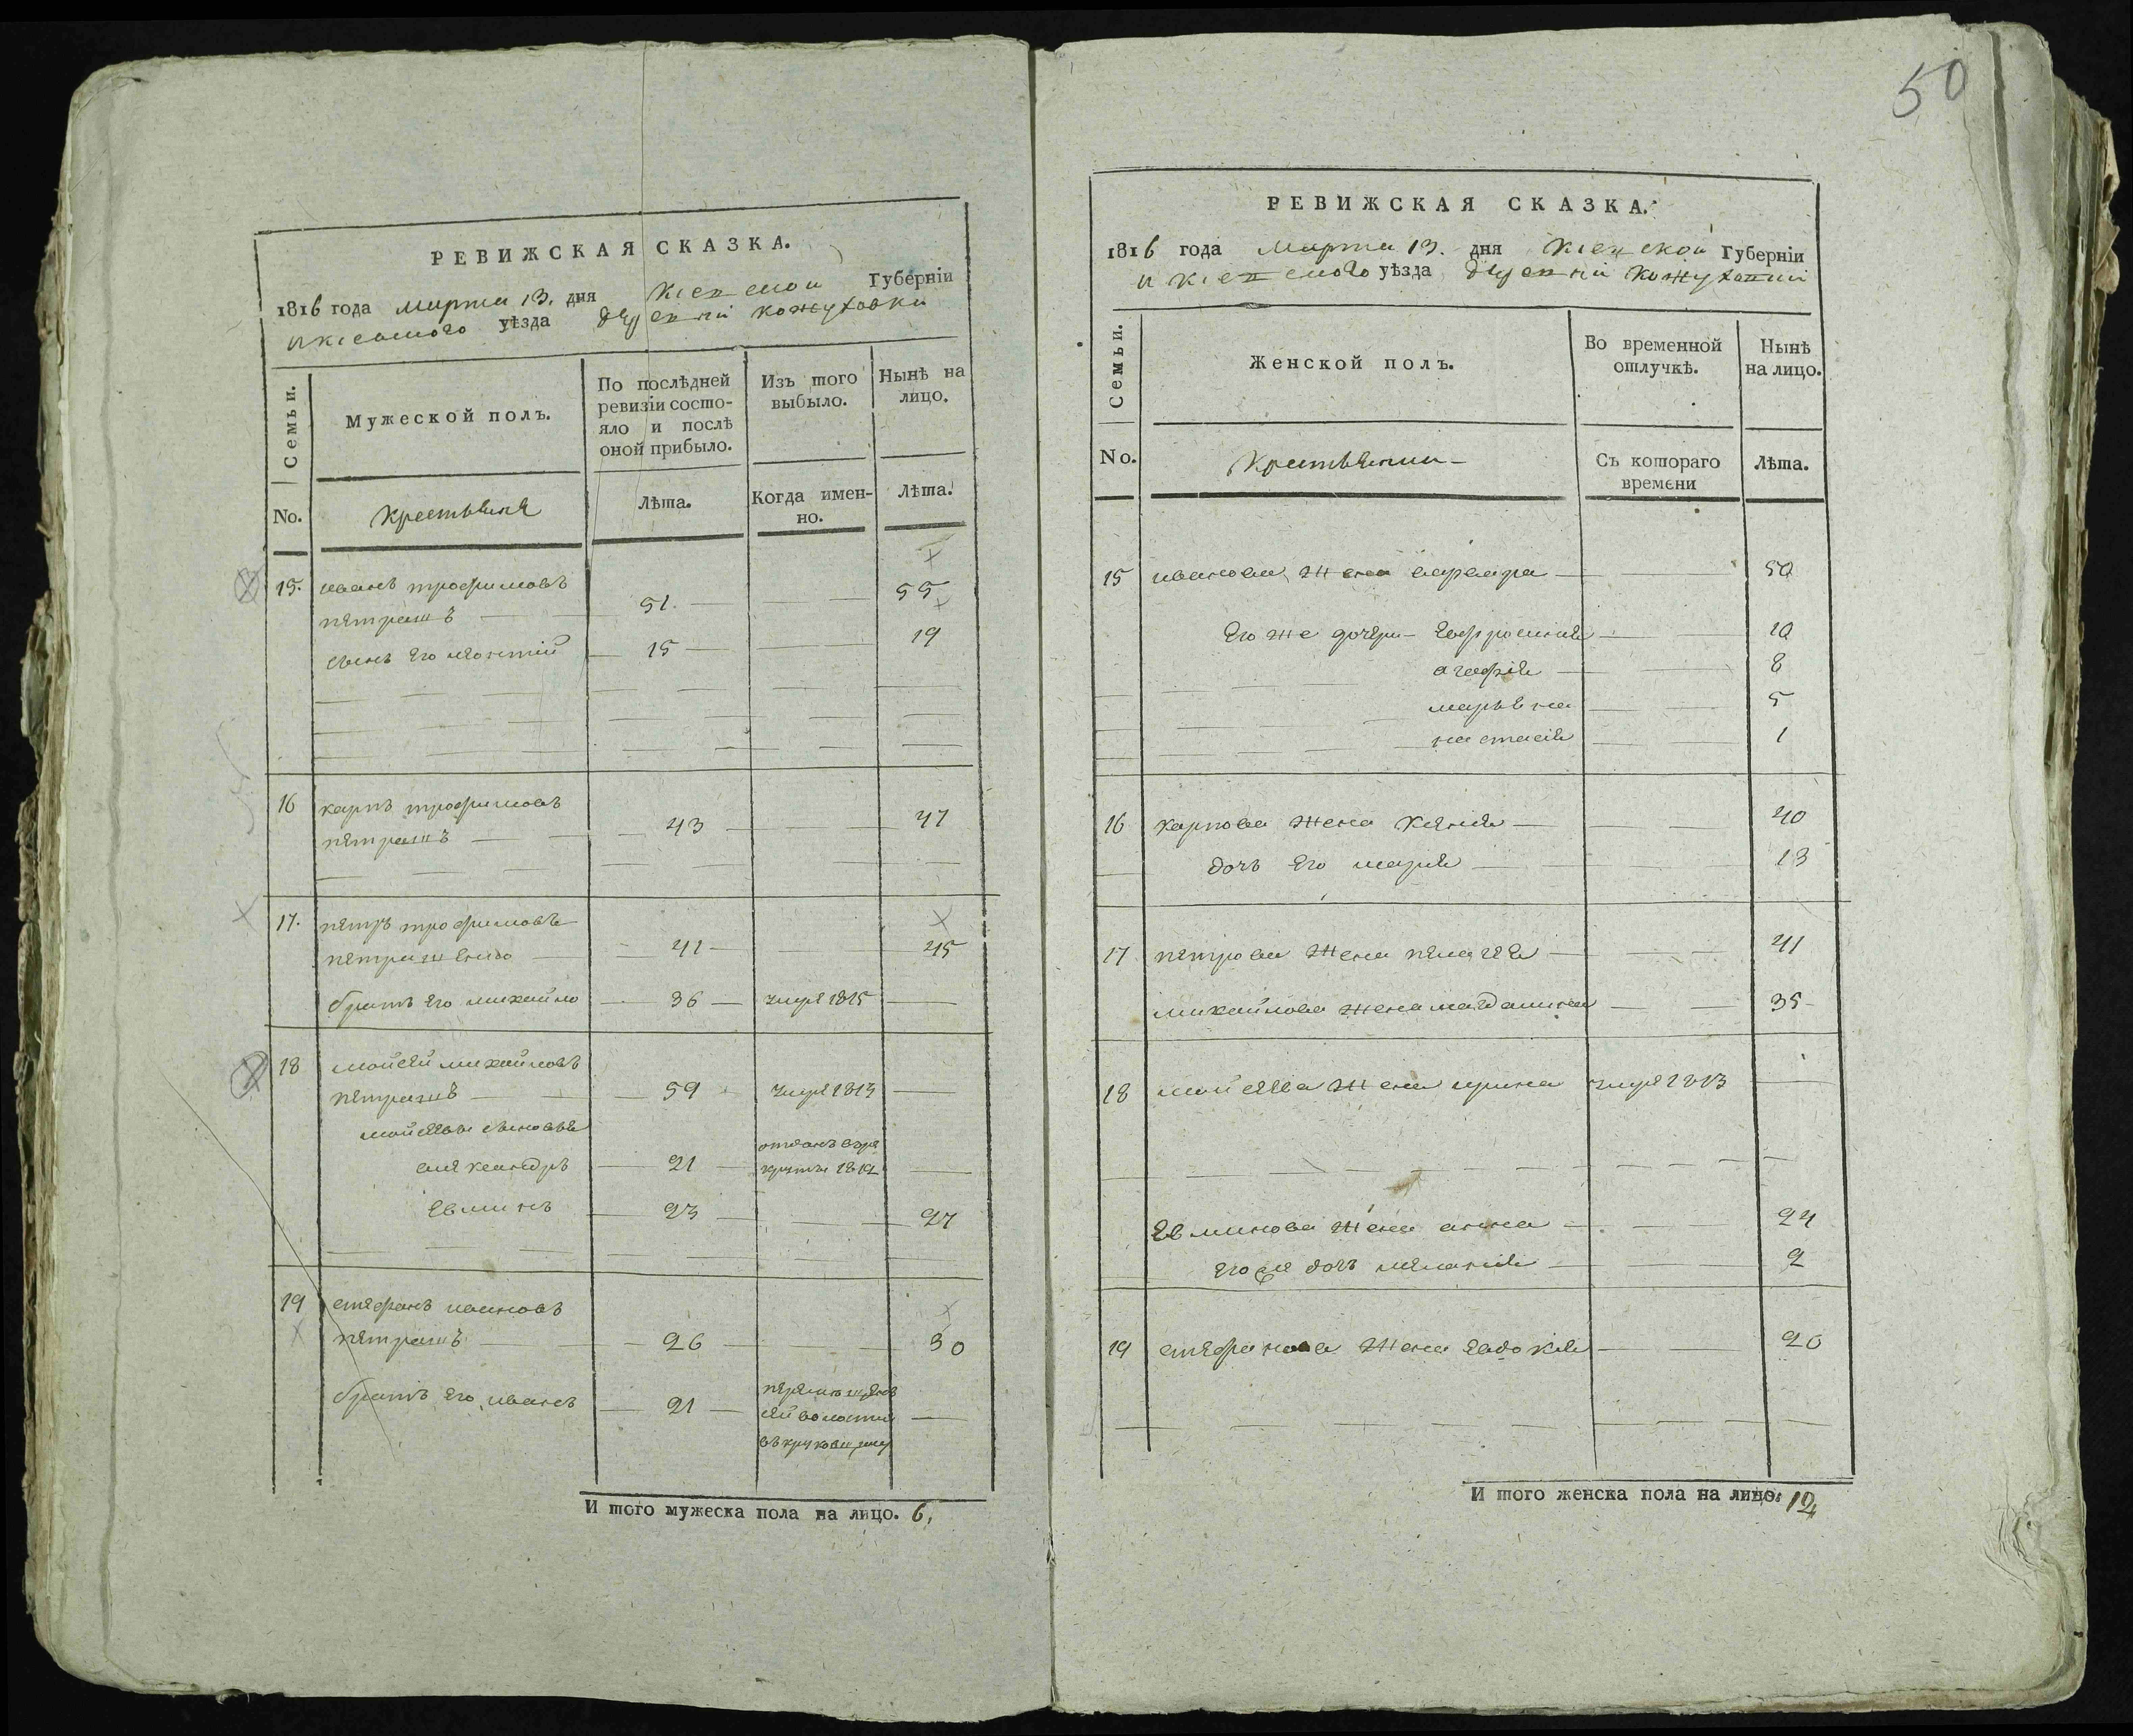 50
РЕВИЖСКАЯ СКАЗКА.
1816 года марта 13. дня Кіевской Губерніи
и кіевского уѣзда деревни кожуховки
Семьи.
Мужеской полъ.
По послѣдней ревизіи состо-
яло и послѣ
оной прибыло.
Изъ того выбыло.
Нынѣ на лицо.
No.
Крестьяня
Лѣта.
Когда имен-
но.
Лѣта.
15. иванъ трофимовъ
петрашъ 51. 55
сынъ его леонтій 15 19
16 карпъ трофимовъ
петрашъ 43 47
17. петръ трофимовъ
петрашенко 41 45
братъ его михайло 36 умре 1815
18 мойсей михайловъ
петрашъ 59 умре 1813
мойсеевы сыновья
александръ 21 отданъ въре
круты 1812
евминъ 23 27
19 стефанъ ивановъ
петрашъ 26 30
братъ его иванъ 21
ей волости
И того мужеска пола на лицо. 6.
РЕВИЖСКАЯ СКАЗКА.
1816 года марта 13. дня Кіевской Губерніи
и кіевского уѣзда деревни кожуховки
Семьи.
Женской полъ.
Во временной отлучкѣ.
Нынѣ на лицо.
No.
Крестьянки
Съ котораго времени
Лѣта.
15 иванова жена варвара 50
его же дочери Евфросинія 10
агафія 8
марьяна 5
настасія 1
16 карпова жена ксенія 40
дочь его марія 13
17 петрова жена пелагея 41
михайлова жена магдалина 35
18 мойсеева жена ирина умре 1813
Евминова жена анна 24
его же дочь меланія 2
19 стефанова жена евдокія 20
И того женска пола на лицо: 12